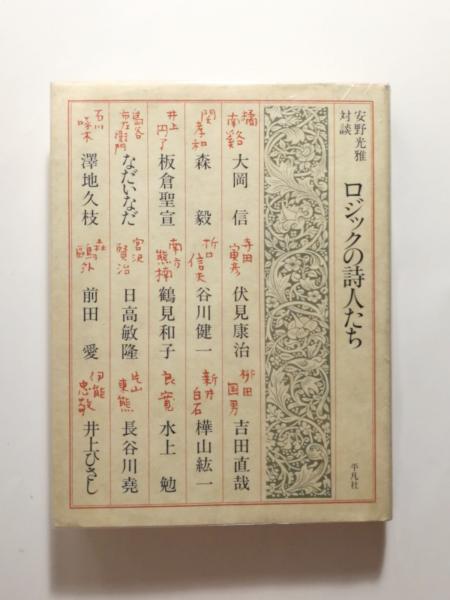 安野光雅
対談
ロジックの詩人たち
平凡社
橘南谿
大岡信
寺田寅彦
伏見康治
柳田国男
吉田直哉
関孝和
森毅
折口信夫
谷川健一
新井白石
樺山紘一
井上円了
板倉聖宣
南方熊楠
鶴見和子
良寛
水上勉
島谷市左衛門
なだいなだ
宮沢賢治
日高敏隆
片山東熊
長谷川堯
石川啄木
澤地久枝
森鷗外
前田愛
伊能忠敬
井上ひさし